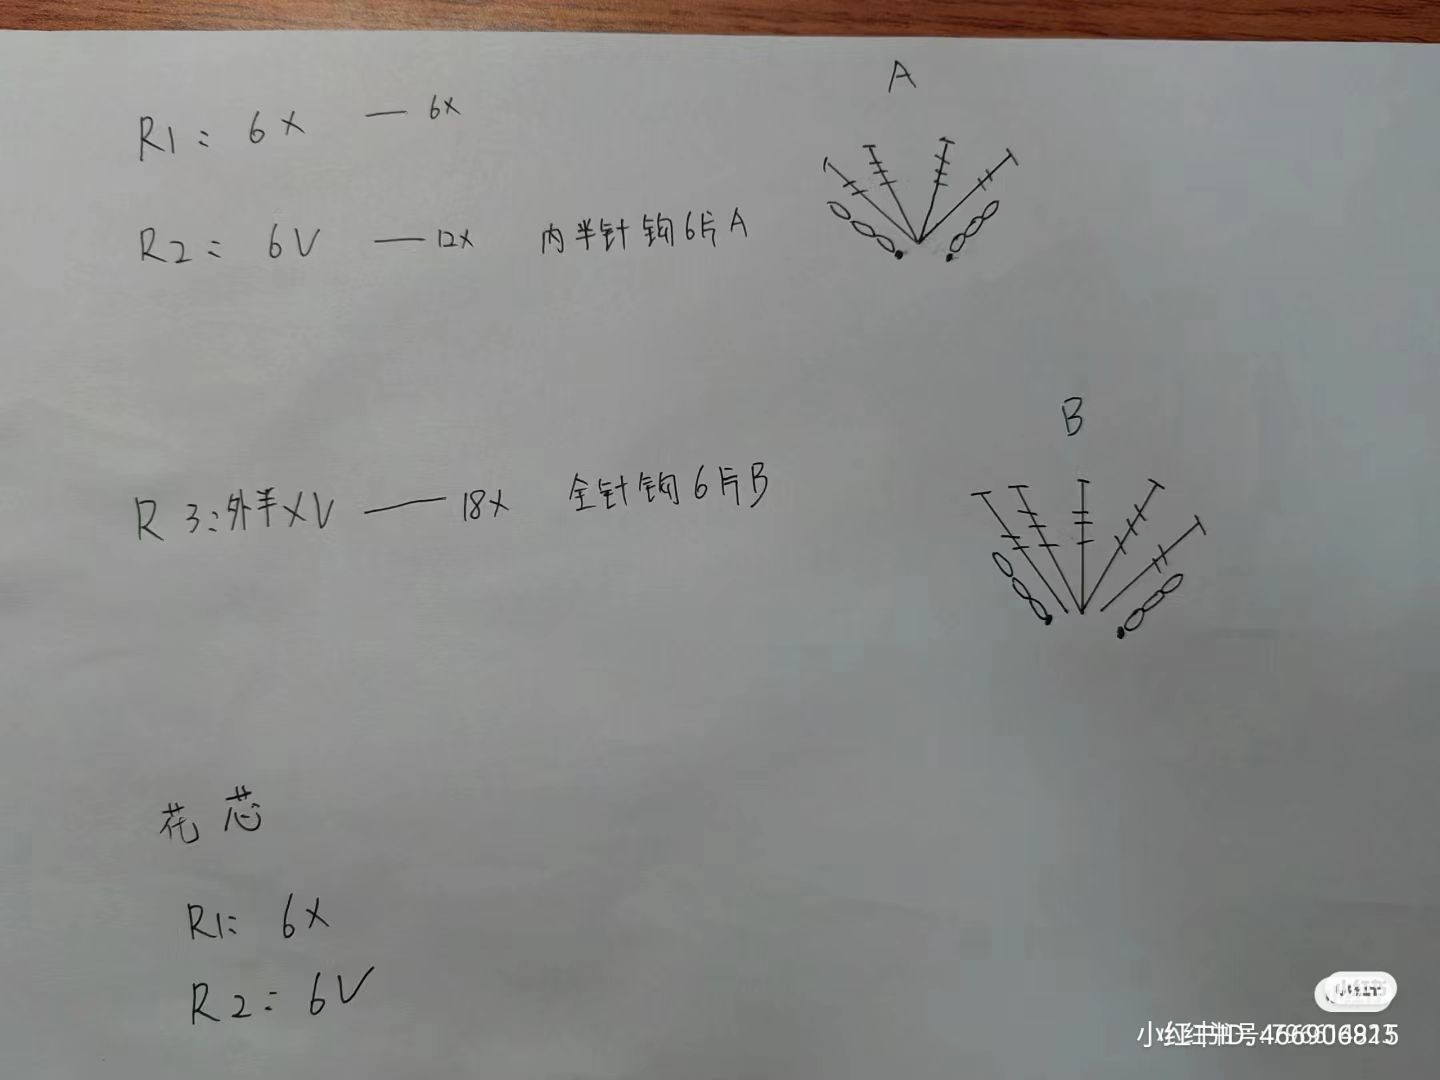 A
R1: 6X — 6X
R2: 6V — 12X 内半针钩6片A
B
R3:外半XV — 18X 全针钩6片B
花芯
R1: 6X
R2: 6V